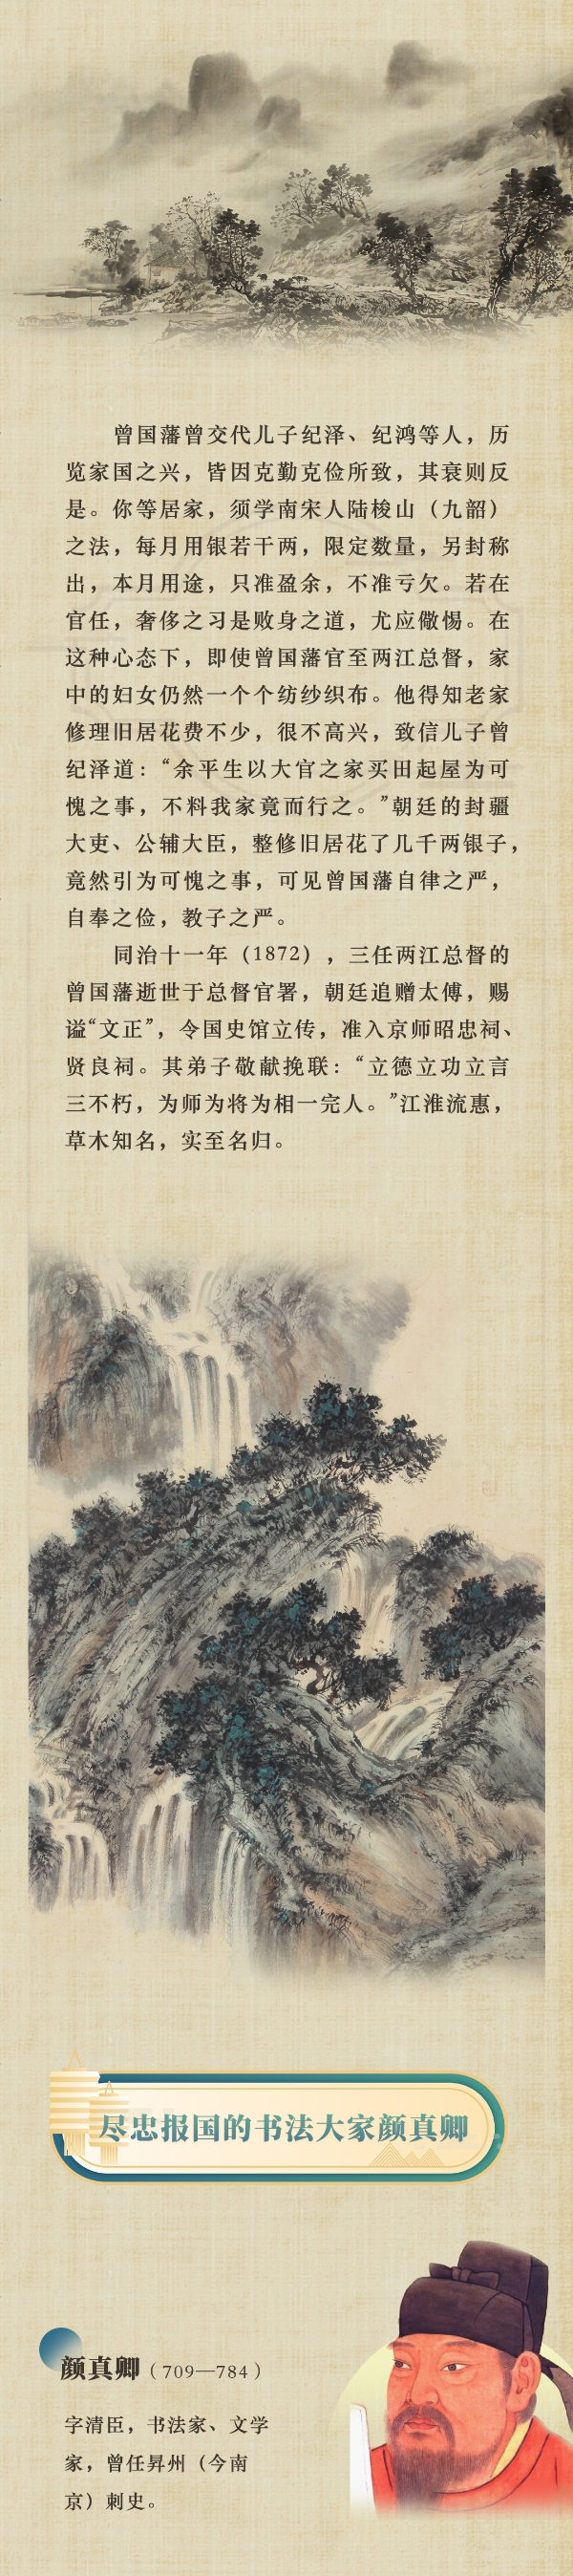 曾国藩曾交代儿子纪泽、纪鸿等人，历
览家国之兴，皆因克勤克俭所致，其衰则反
是。你等居家，须学南宋人陆梭山（九韶）
之法，每月用银若干两，限定数量，另封称
出，本月用途，只准盈余，不准亏欠。若在
官任，奢侈之习是败身之道，尤应儆惕。在
这种心态下，即使曾国藩官至两江总督，家
中的妇女仍然一个个纺纱织布。他得知老家
修理旧居花费不少，很不高兴，致信儿子曾
纪泽道：“余平生以大官之家买田起屋为可
愧之事，不料我家竟而行之。”朝廷的封疆
大吏、公辅大臣，整修旧居花了几千两银子，
竟然引为可愧之事，可见曾国藩自律之严，
自奉之俭，教子之严。
同治十一年（1872），三任两江总督的
曾国藩逝世于总督官署，朝廷追赠太傅，赐
谥“文正”，令国史馆立传，准入京师昭忠祠、
贤良祠。其弟子敬献挽联：“立德立功立言
三不朽，为师为将为相一完人。”江淮流惠，
草木知名，实至名归。
尽忠报国的书法大家颜真卿
颜真卿（709—784）
字清臣，书法家、文学
家，曾任昇州（今南
京）刺史。